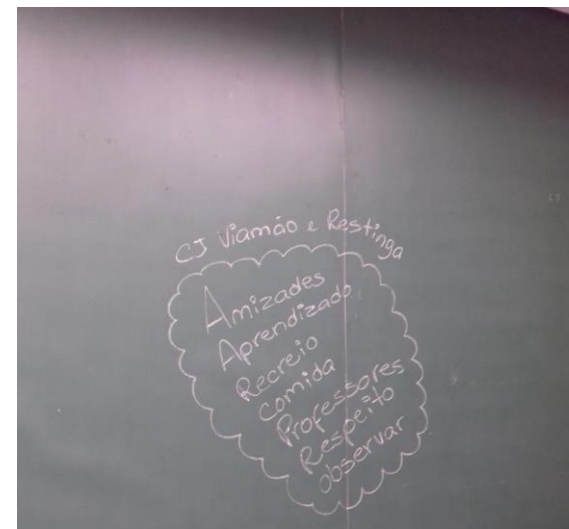 CJ Viamão e Restinga
Amizades
Aprendizado
Recreio
comida
Professores
Respeito
observar